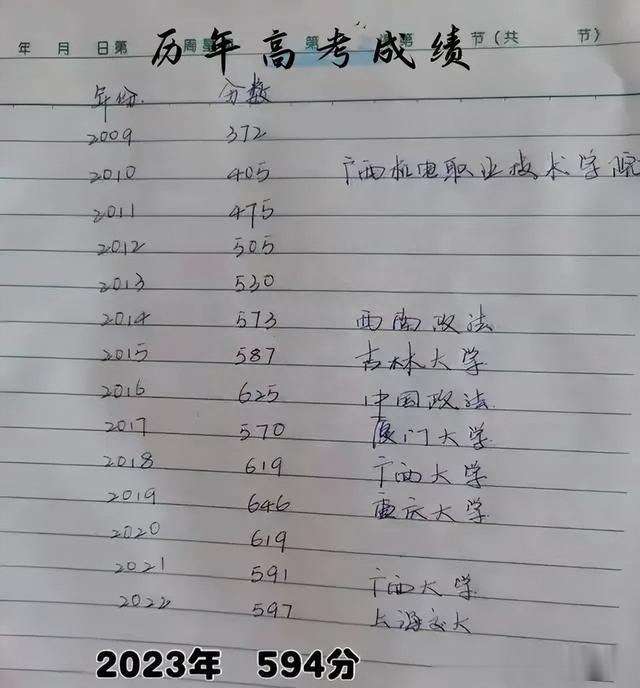 历年高考成绩
年 月 日第 周星 第 第 节(共 节)
年份. 分数
2009 372
2010 405 广西机电职业技术学院
2011 475
2012 505
2013 530
2014 573 西南政法
2015 587 吉林大学
2016 625 中国政法
2017 570 厦门大学
2018 619 广西大学
2019 646 重庆大学
2020 619
2021 591 广西大学
2022 597 上海交大
2023年 594分